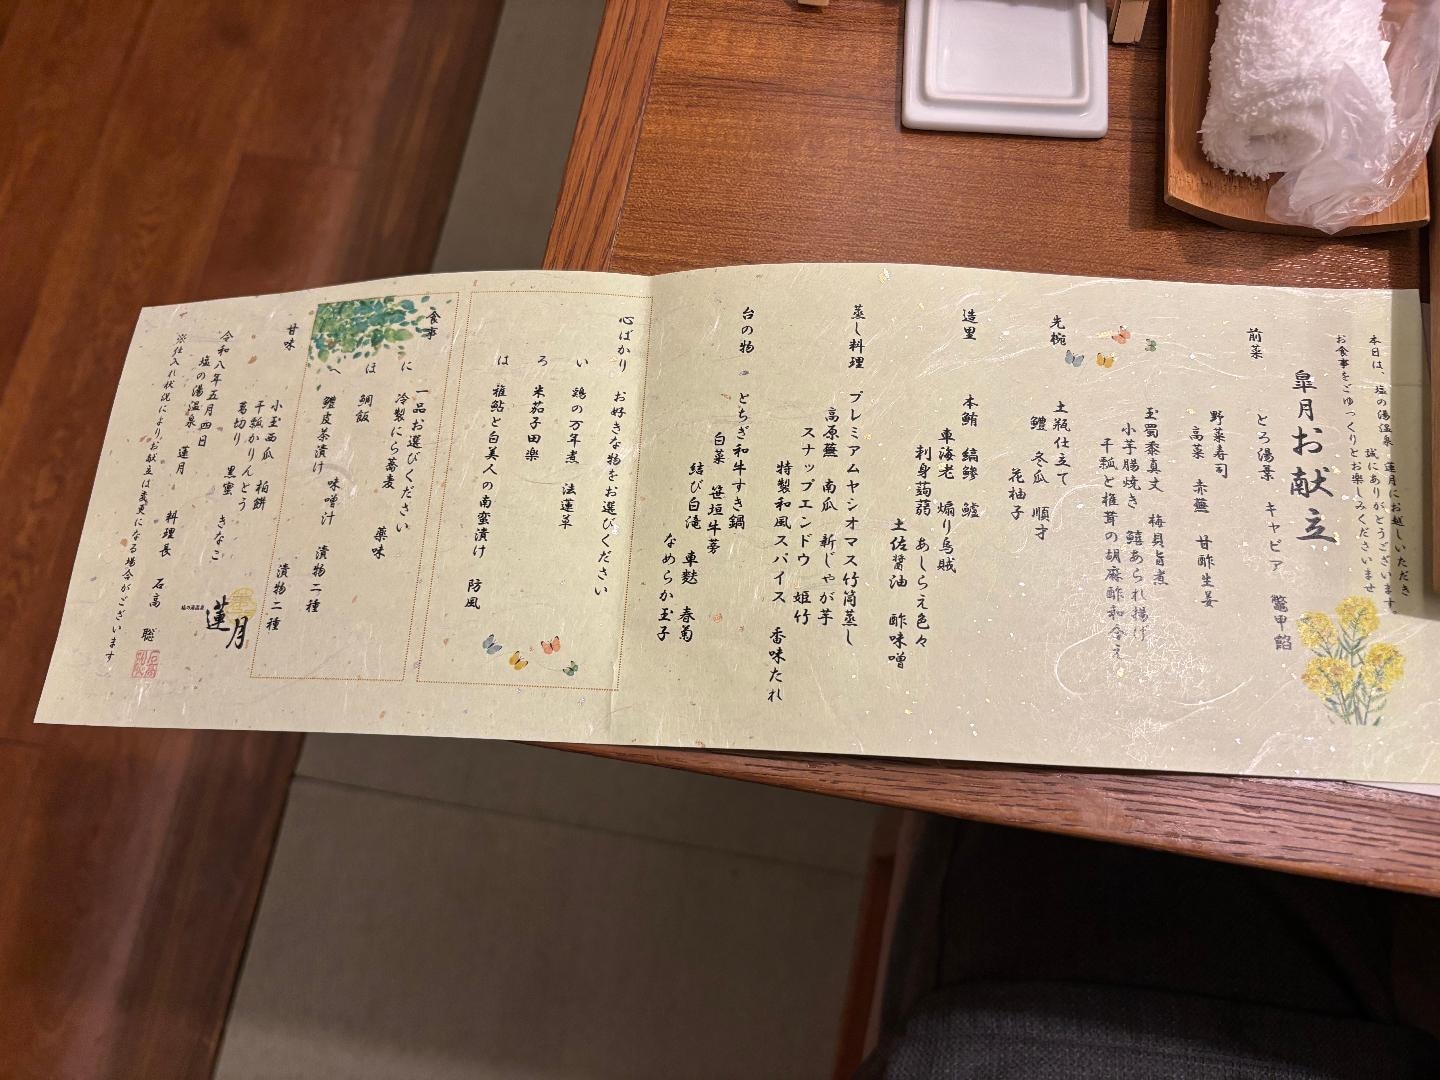 本日は、塩の湯温泉 蓮月にお越しいただき
誠にありがとうございます。
お食事をごゆっくりとお楽しみくださいませ
皐月お献立
前菜 とろ湯景 キャビア 鼈甲餡
野菜寿司
高菜 赤蕪 甘酢生姜
玉蜀黍真丈 梅貝旨煮
小芋腸焼き 鱚あられ揚げ
干瓢と椎茸の胡麻酢和合え
先椀 土瓶仕立て
鱧 冬瓜 順才
花柚子
造里 本鮪 縞鯵 鱸
車海老 煽り烏賊
刺身蒟蒻 あしらえ色々
土佐醤油 酢味噌
蒸し料理 プレミアムヤシオマス竹筒蒸し
高原蕪 南瓜 新じゃが芋
スナップエンドウ 姫竹
特製和風スパイス 香味たれ
台の物 とちぎ和牛すき鍋
白菜 笹垣牛蒡
結び白滝 車麩 春菊
なめらか玉子
心ばかり お好きな物をお選びください
い 鶏の万年煮 法蓮草
ろ 米茄子田楽
は 稚鮎と白美人の南蛮漬け 防風
食事 一品お選びください
に 冷製にら蕎麦 薬味
ほ 鯛飯
へ 鱧皮茶漬け 味噌汁 漬物二種
漬物二種
甘味 小玉西瓜 柏餅
干瓢かりんとう
葛切り 黒蜜 きなこ
令和八年五月四日
塩の湯温泉 蓮月
料理長 石高 聡
※仕入れ状況によりお献立は変更になる場合がございます
塩の湯温泉
蓮月